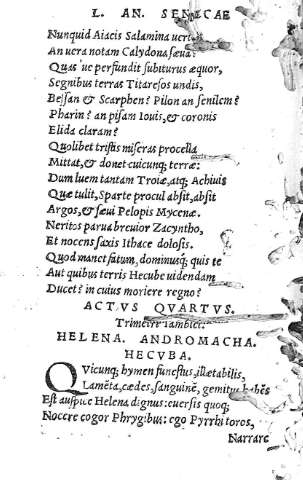 L. AN. SENECAE
Nunquid Aiacis Salamina
An uera notam Calydona sæua?
Quas ue perfundit subiturus æquor,
Segnibus terras Titaresos undis,
Bessan & Scarphen? Pilon an senilem?
Pharin? an pisam Iouis, & coronis
Elida claram?
Quolibet tristis miseras procella
Mittat, & donet cuicunq; terræ:
Dum luem tantam Troiæ, atq; Achiuis
Quæ tulit, Sparte procul absit, absit
Argos, & sæui Pelopis Mycenæ.
Neritos parua breuior Zacyntho,
Et nocens saxis Ithace dolosis.
Quod manet fatum, dominusq; quis te
Aut quibus terris Hecube uidendam
Ducet? in cuius moriere regno?
ACTVS QVARTVS.
Trimetri Iambici.
HELENA. ANDROMACHA.
HECVBA.
QVicunq; hymen funestus, illætabilis,
Lamēta, cædes, sanguinē, gemitus habēs
Est auspice Helena dignus: euersis quoq;
Nocere cogor Phrygibus: ego Pyrrhi toros,
Narrare